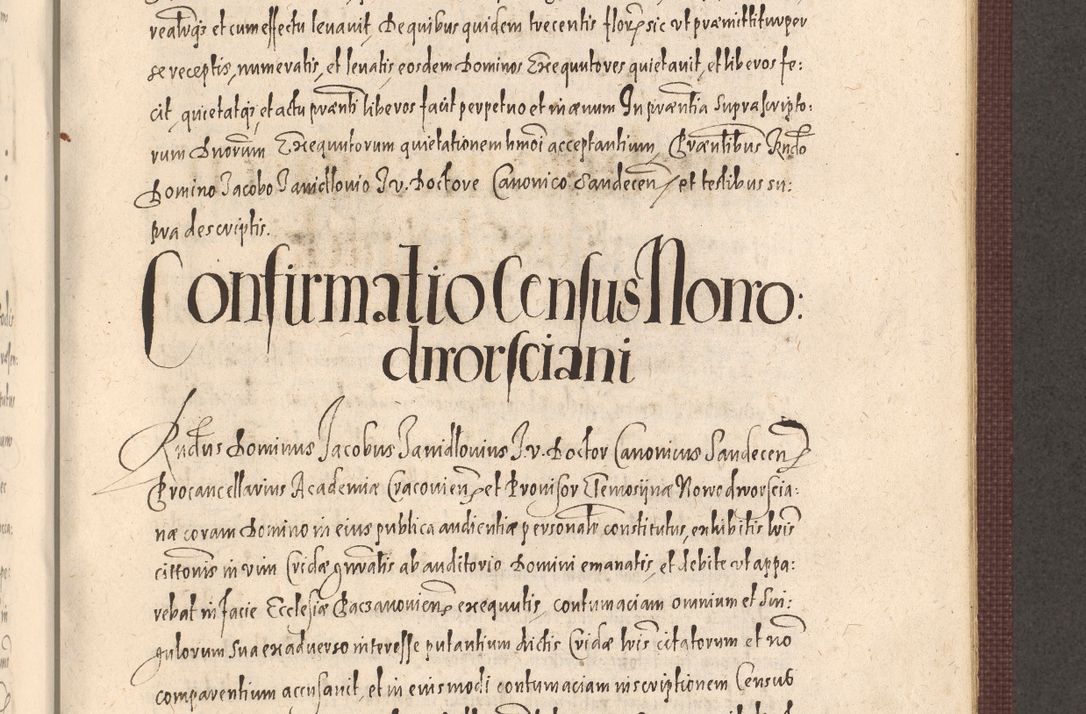 realiterq3 et cum effectu levavit, De quibus quidem trecentis floren sic ut præmittitur per
se receptis, numeratis, et levatis eosdem Dominos Exequutores quietavit, et liberos fe:
cit, quietatq3, et actu præsenti liberos facit perpetuo et in ævum In præsentia suprascripto:
rum Dnorum Exequutorum quietationem hmoi acceptantium, Præntibus Rndo
Domino Jacobo Janidlovio J. v. Doctore Canonico Sandecen, et testibus su:
pra descriptis.
Confirmatio Census Nowo:
dworsciani
Rndus Dominus Jacobus Janidlovius J. v. Doctor Canonicus Sandecen
Procancellarius Academiæ Cracovien et Provisor Elemosijnæ Nowodworscia:
næ coram Domino in eius publica audientia personalr constitutus, exhibitis lris
cittonis in vim Cridæ gnralis ab auditorio Domini emanatis, et debite ut appa:
rebat in facie Ecclesiæ Paczanovien exequutis, contumaciam omnium et Sin:
gulorum sua ex adverso interesse putantium dictis Cridæ lris citatorum et no
comparentium accusavit, et in eiusmodi contumaciam inscriptionem Census